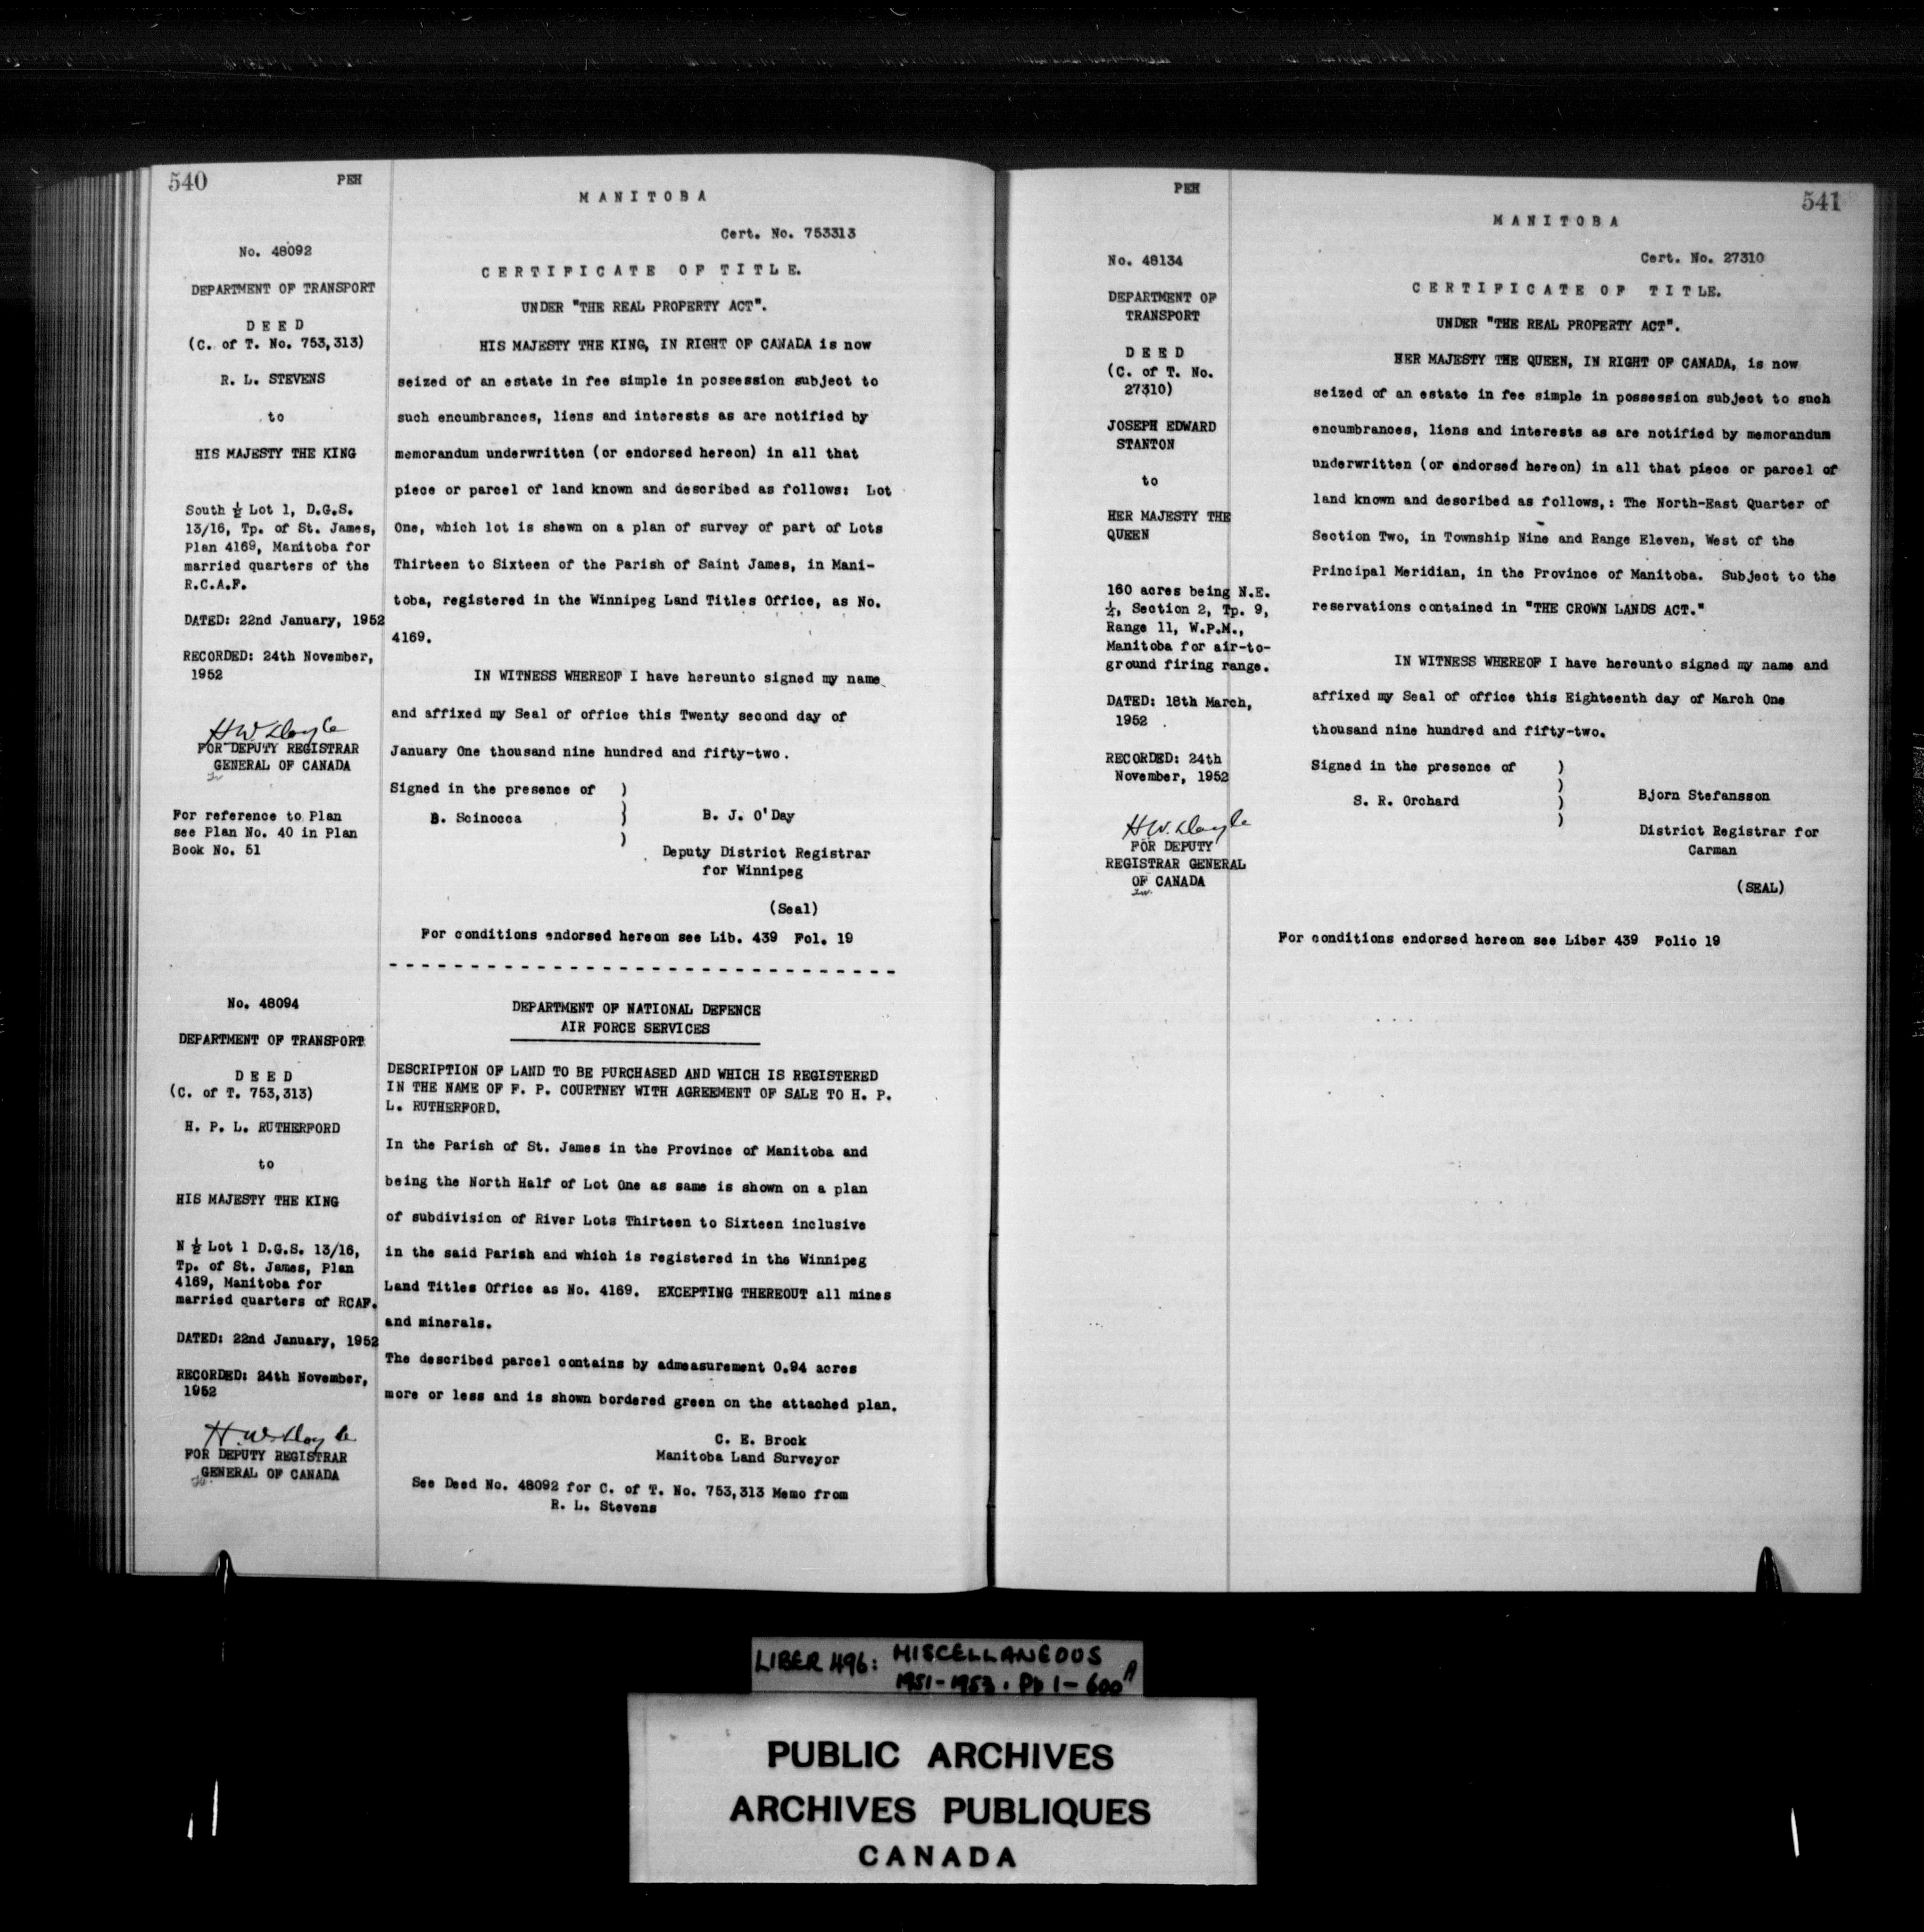 540
PEH
No. 48092
DEPARTMENT OF TRANSPORT
D E E D
(C. of T. No. 753,313)
R. L. STEVENS
to
HIS MAJESTY THE KING
South ½ Lot 1, D.G.S.
13/16, Tp. of St. James,
Plan 4169, Manitoba for
married quarters of the
R.C.A.F.
DATED: 22nd January, 1952
RECORDED: 24th November,
1952
H W Doyle
FOR DEPUTY REGISTRAR
GENERAL OF CANADA
For reference to Plan
see Plan No. 40 in Plan
Book No. 51
M A N I T O B A
Cert. No. 753313
C E R T I F I C A T E O F T I T L E.
UNDER "THE REAL PROPERTY ACT".
HIS MAJESTY THE KING, IN RIGHT OF CANADA is now
seized of an estate in fee simple in possession subject to
such encumbrances, liens and interests as are notified by
memorandum underwritten (or endorsed hereon) in all that
piece or parcel of land known and described as follows: Lot
One, which lot is shewn on a plan of survey of part of Lots
Thirteen to Sixteen of the Parish of Saint James, in Mani-
toba, registered in the Winnipeg Land Titles Office, as No.
4169.
IN WITNESS WHEREOF I have hereunto signed my name
and affixed my Seal of office this Twenty second day of
January One thousand nine hundred and fifty-two.
Signed in the presence of )
B. Scinocca ) B. J. O'Day
)
Deputy District Registrar
for Winnipeg
(Seal)
For conditions endorsed hereon see Lib. 439 Fol. 19
- - - - - - - - - - - - - - - - - - - - - - - - - - - - - - -
No. 48094
DEPARTMENT OF TRANSPORT
D E E D
(C. of T. 753,313)
H. P. L. RUTHERFORD
to
HIS MAJESTY THE KING
N ½ Lot 1 D.G.S. 13/16,
Tp. of St. James, Plan
4169, Manitoba for
married quarters of RCAF.
DATED: 22nd January, 1952
RECORDED: 24th November,
1952
H. W. Doyle
FOR DEPUTY REGISTRAR
GENERAL OF CANADA
DEPARTMENT OF NATIONAL DEFENCE
AIR FORCE SERVICES
DESCRIPTION OF LAND TO BE PURCHASED AND WHICH IS REGISTERED
IN THE NAME OF F. P. COURTNEY WITH AGREEMENT OF SALE TO H. P.
L. RUTHERFORD.
In the Parish of St. James in the Province of Manitoba and
being the North Half of Lot One as same is shown on a plan
of subdivision of River Lots Thirteen to Sixteen inclusive
in the said Parish and which is registered in the Winnipeg
Land Titles Office as No. 4169. EXCEPTING THEREOUT all mines
and minerals.
The described parcel contains by admeasurement 0.94 acres
more or less and is shown bordered green on the attached plan.
C. E. Brock
Manitoba Land Surveyor
See Deed No. 48092 for C. of T. No. 753,313 Memo from
R. L. Stevens
PEH
541
No. 48134
DEPARTMENT OF
TRANSPORT
D E E D
(C. of T. No.
27310)
JOSEPH EDWARD
STANTON
to
HER MAJESTY THE
QUEEN
160 acres being N.E.
½, Section 2, Tp. 9,
Range 11, W.P.M.,
Manitoba for air-to-
ground firing range.
DATED: 18th March,
1952
RECORDED: 24th
November, 1952
H.W. Doyle
FOR DEPUTY
REGISTRAR GENERAL
OF CANADA
M A N I T O B A
Cert. No. 27310
C E R T I F I C A T E O F T I T L E.
UNDER "THE REAL PROPERTY ACT".
HER MAJESTY THE QUEEN, IN RIGHT OF CANADA, is now
seized of an estate in fee simple in possession subject to such
encumbrances, liens and interests as are notified by memorandum
underwritten (or endorsed hereon) in all that piece or parcel of
land known and described as follows,: The North-East Quarter of
Section Two, in Township Nine and Range Eleven, West of the
Principal Meridian, in the Province of Manitoba. Subject to the
reservations contained in "THE CROWN LANDS ACT."
IN WITNESS WHEREOF I have hereunto signed my name and
affixed my Seal of office this Eighteenth day of March One
thousand nine hundred and fifty-two.
Signed in the presence of )
) Bjorn Stefansson
S. R. Orchard )
)
District Registrar for
Carman
(SEAL)
For conditions endorsed hereon see Liber 439 Folio 19
LIBER 496: MISCELLANEOUS
1951-1953. Pp 1-600A
PUBLIC ARCHIVES
ARCHIVES PUBLIQUES
CANADA